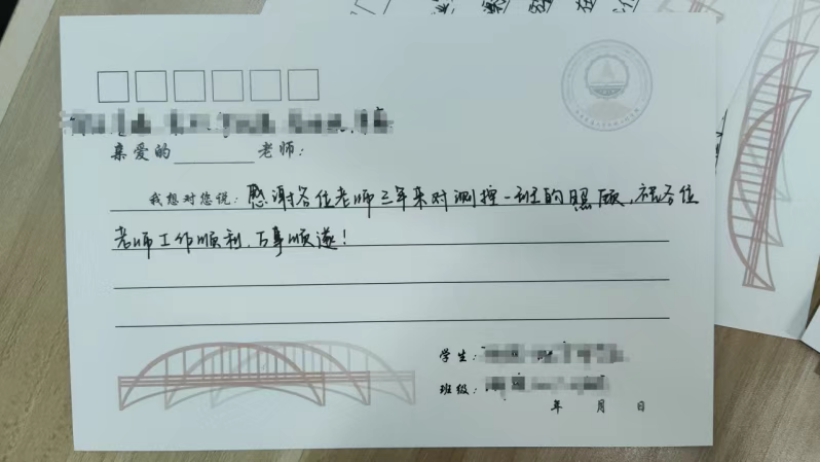 亲爱的________老师：
我想对您说：感谢各位老师三年来对测控一班的照顾，祝各位
老师工作顺利，万事顺遂！
学生：
班级：
年 月 日